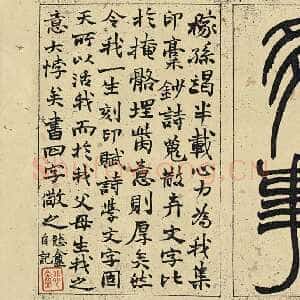 多事
稼孫竭半載心力為我集
印稾鈔詩蒐散弃文字比
於掩骼埋胔意則厚矣然
令我一生刻印賦詩學文字固
天所以活我而於我父母生我之
意大悖矣書四字儆之悲盦
自記